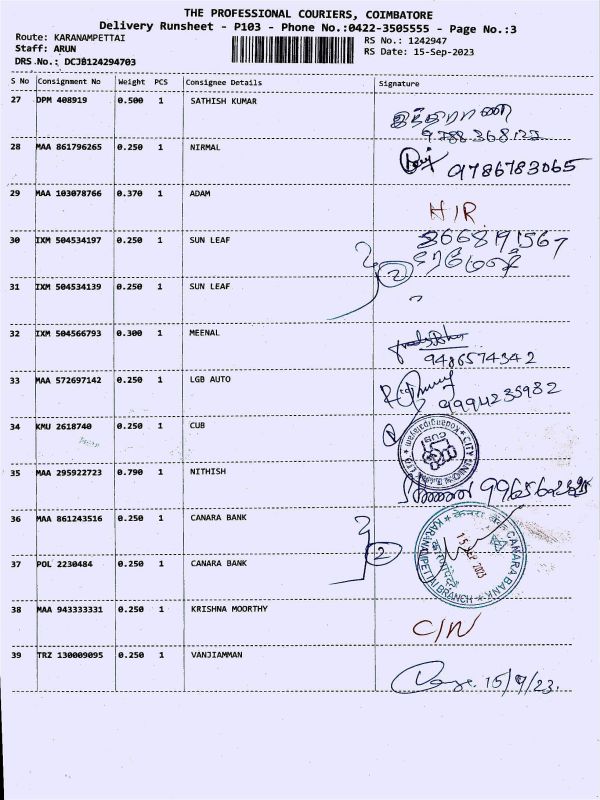 THE PROFESSIONAL COURIERS, COIMBATORE
Delivery Runsheet - P103 - Phone No.:0422-3505555 - Page No.:3
Route: KARANAMPETTAI RS No.: 1242947
Staff: ARUN RS Date: 15-Sep-2023
DRS No.: DCJB124294703
S No Consignment No Weight PCS Consignee Details Signature
27 DPM 408919 0.500 1 SATHISH KUMAR
28 MAA 861796265 0.250 1 NIRMAL 9786783065
29 MAA 103078766 0.370 1 ADAM H/R
30 IXM 504534197 0.250 1 SUN LEAF 8668191567
2
31 IXM 504534139 0.250 1 SUN LEAF
32 IXM 504566793 0.300 1 MEENAL
9486574342
33 MAA 572697142 0.250 1 LGB AUTO 9994235982
34 KMU 2618740 0.250 1 CUB
CITY UNION BANK LTD. Kodangipalayam CUB
35 MAA 295922723 0.790 1 NITHISH
36 MAA 861243516 0.250 1 CANARA BANK
2
CANARA BANK KARANAMPETTAI BRANCH 15 2023
37 POL 2230484 0.250 1 CANARA BANK
38 MAA 943333331 0.250 1 KRISHNA MOORTHY C/N
39 TRZ 130009095 0.250 1 VANJIAMMAN 15/9/23.